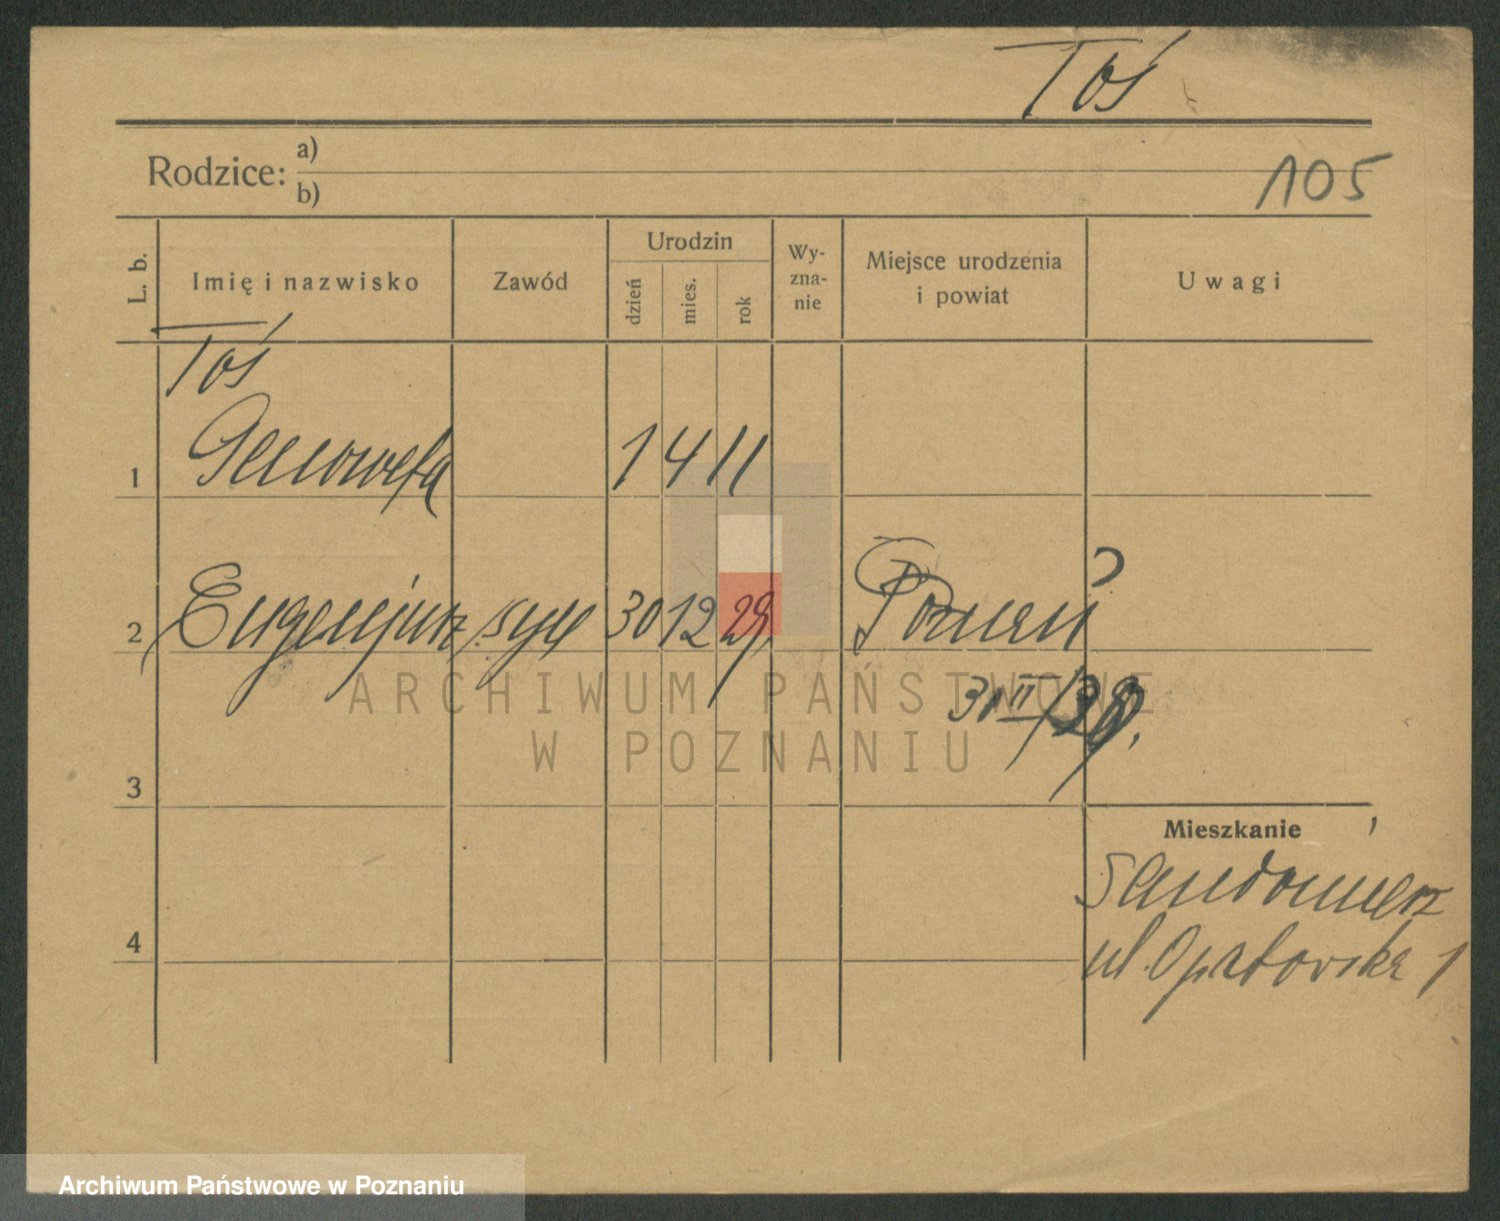 Toś
Rodzice: a)
b)
105
L. b. Imię i nazwisko Zawód Urodzin dzień mies. rok Wy-zna-nie Miejsce urodzenia i powiat Uwagi
Toś
1 Genowefa 1 4 11
2 Eugenjusz syn 30 12 29 Poznań
31 II/39.
3
Mieszkanie
Sandomierz
4 ul. Opatowska 1
ARCHIWUM PAŃSTWOWE
W POZNANIU
Archiwum Państwowe w Poznaniu